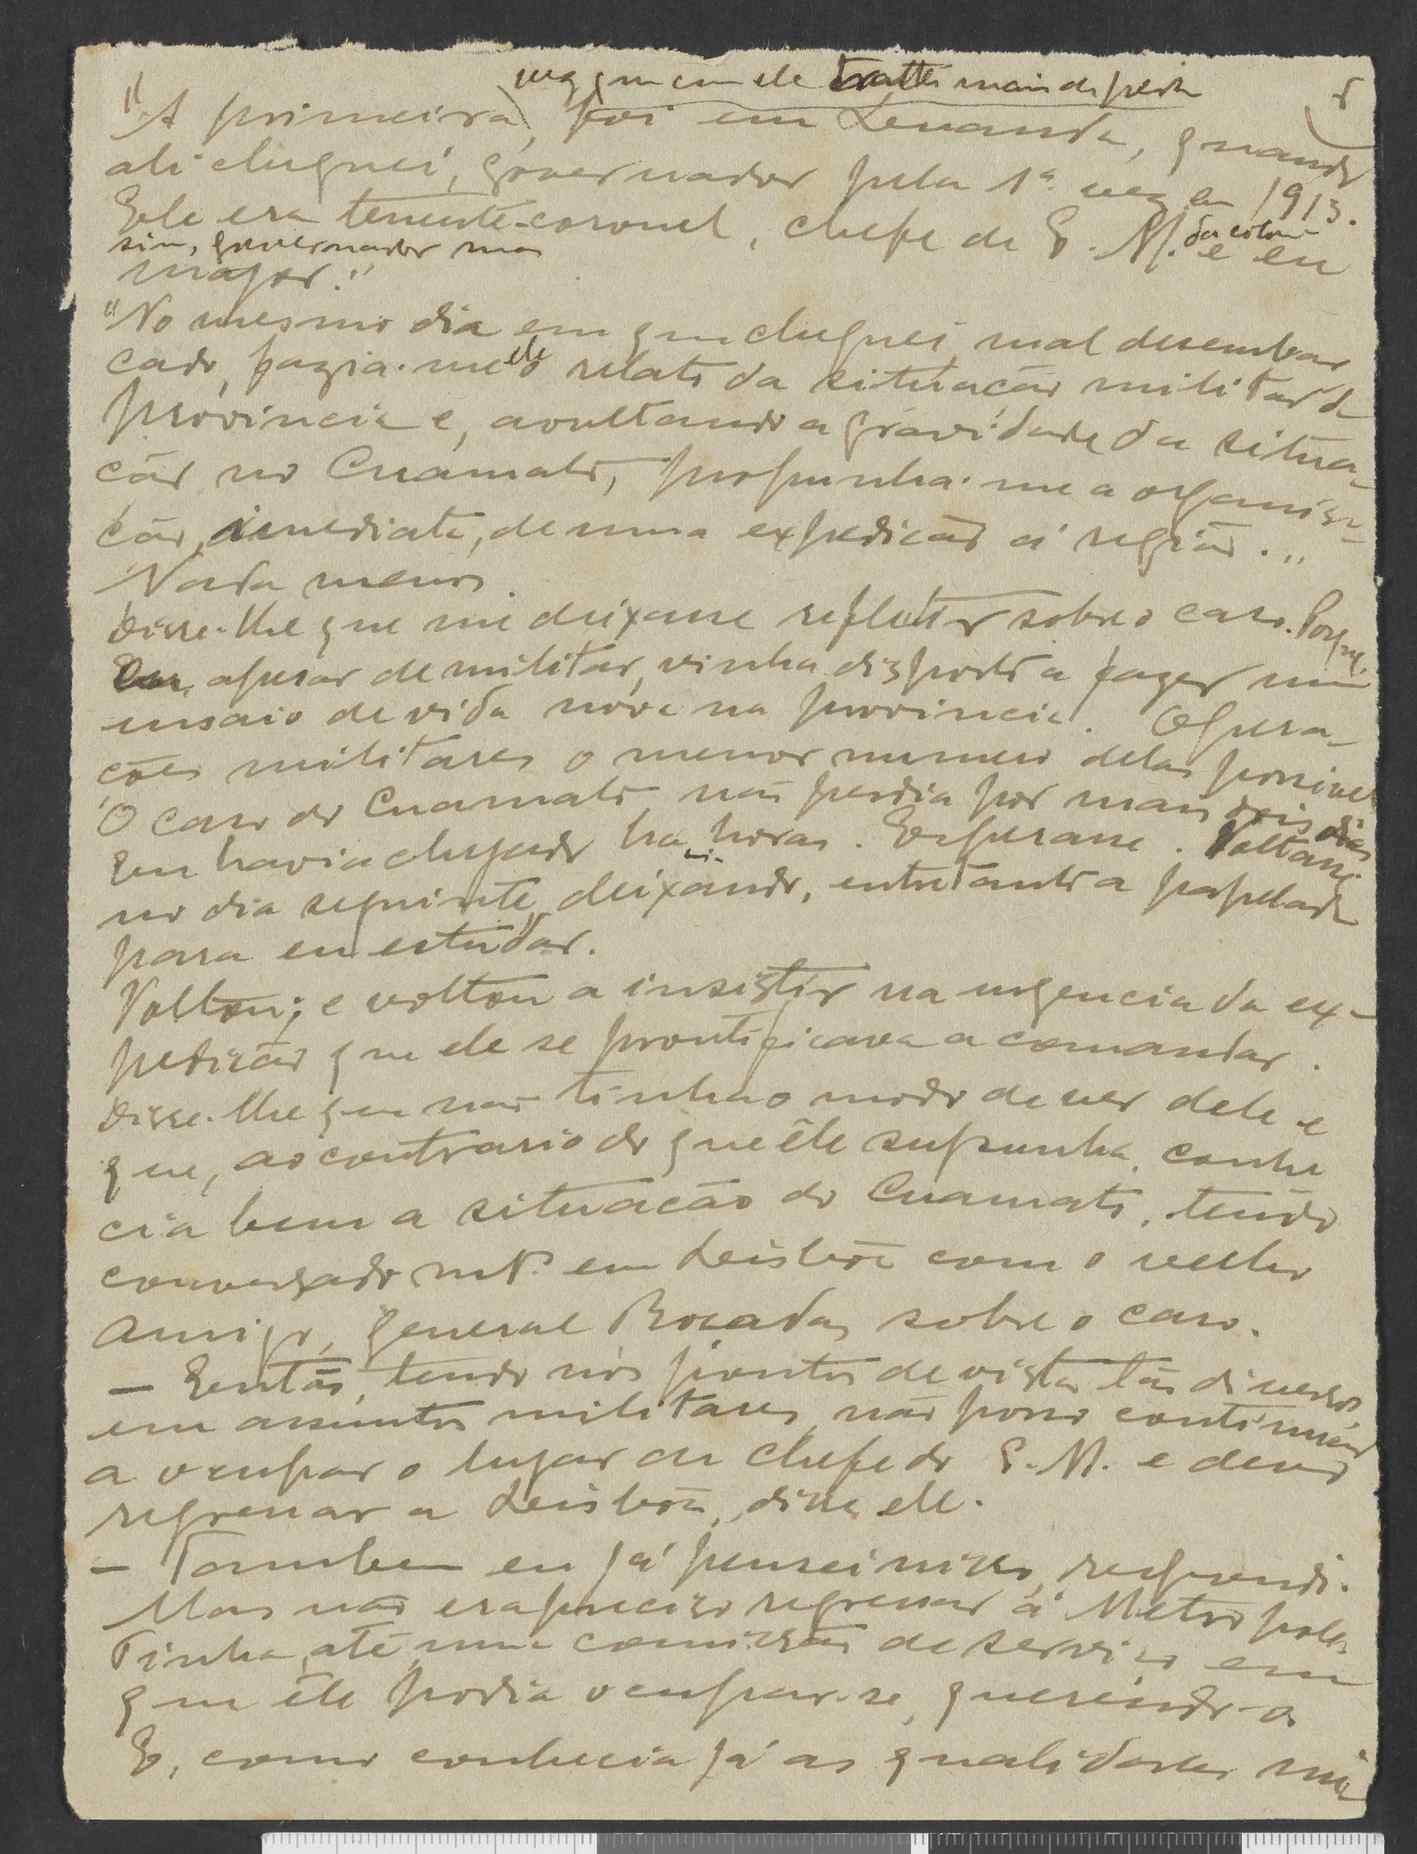 vez que com ele tratei mais de perto
5
"A primeira, foi em Luanda, quando
ali cheguei, governador pela 1ª vez em 1913.
Ele era tenente-coronel, chefe de E. M. da colonia e eu
sim, governador mas
major."
"No mesmo dia em que cheguei, mal desembar
cado, fazia-me ele o relato da situação militar da
provincia e, avultando a gravidade da situa-
ção no Cuamato, propunha-me a organisa-
ção, imediata, de uma expedição á região...
Nada menos.
Disse-lhe que me deixasse refletir sobre o caso. Porque,
apesar de militar, vinha disposto a fazer um
ensaio de vida nova na provincia. Opera-
ções militares o menor numero delas possivel
O caso do Cuamato não perdia por mais dois dias
Eu havia chegado ha horas. Esperasse. Voltasse
no dia seguinte, deixando-me, entretanto a papelada
para eu estudar.
Voltou; e voltou a insistir na urgencia da ex-
pedição que ele se prontificava a comandar.
Disse-lhe que não tinha o modo de ver dele e
que, ao contrario do que êle supunha, conhe
cia bem a situação do Cuamato, tendo
conversado mtº em Leisbôa com o velho
amigo, general Roçadas sobre o caso.
— Então, tendo nós pontos de vista tão diversos
em assuntos militares, não posso continuar
a ocupar o lugar de chefe do E. M. e devo
regressar a Leisbôa, disse ele.
— Tambem eu já pensei nisso, respondi.
Mas não era preciso regressar á Metropole.
Tinha, até, uma comissão de serviço em
que êle podia ocupar-se, querendo-o
E, como conhecia já as qualidades mi